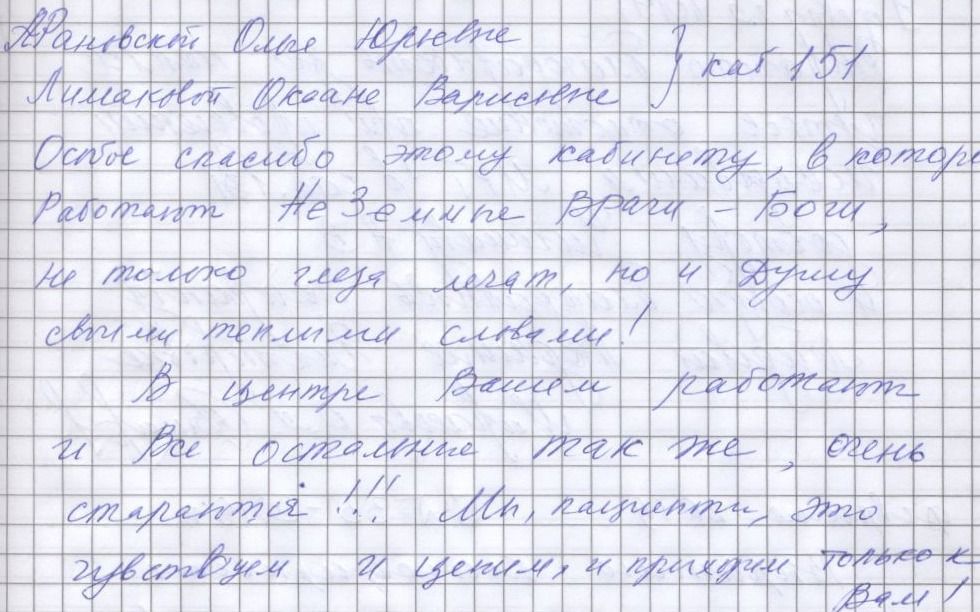 Арановской Ольге Юрьевне } каб 151
Лимаковой Оксане Варисовне
Особое спасибо этому кабинету, в которо
Работают НеЗемные Врачи - Боги,
не только глаза лечат, но и Душу
своими теплыми словами!
В центре Вашем работают
и Все остальные так же, очень
стараются!!! Мы, пациенты, это
чувствуем и ценим, и приходим только к
Вам!